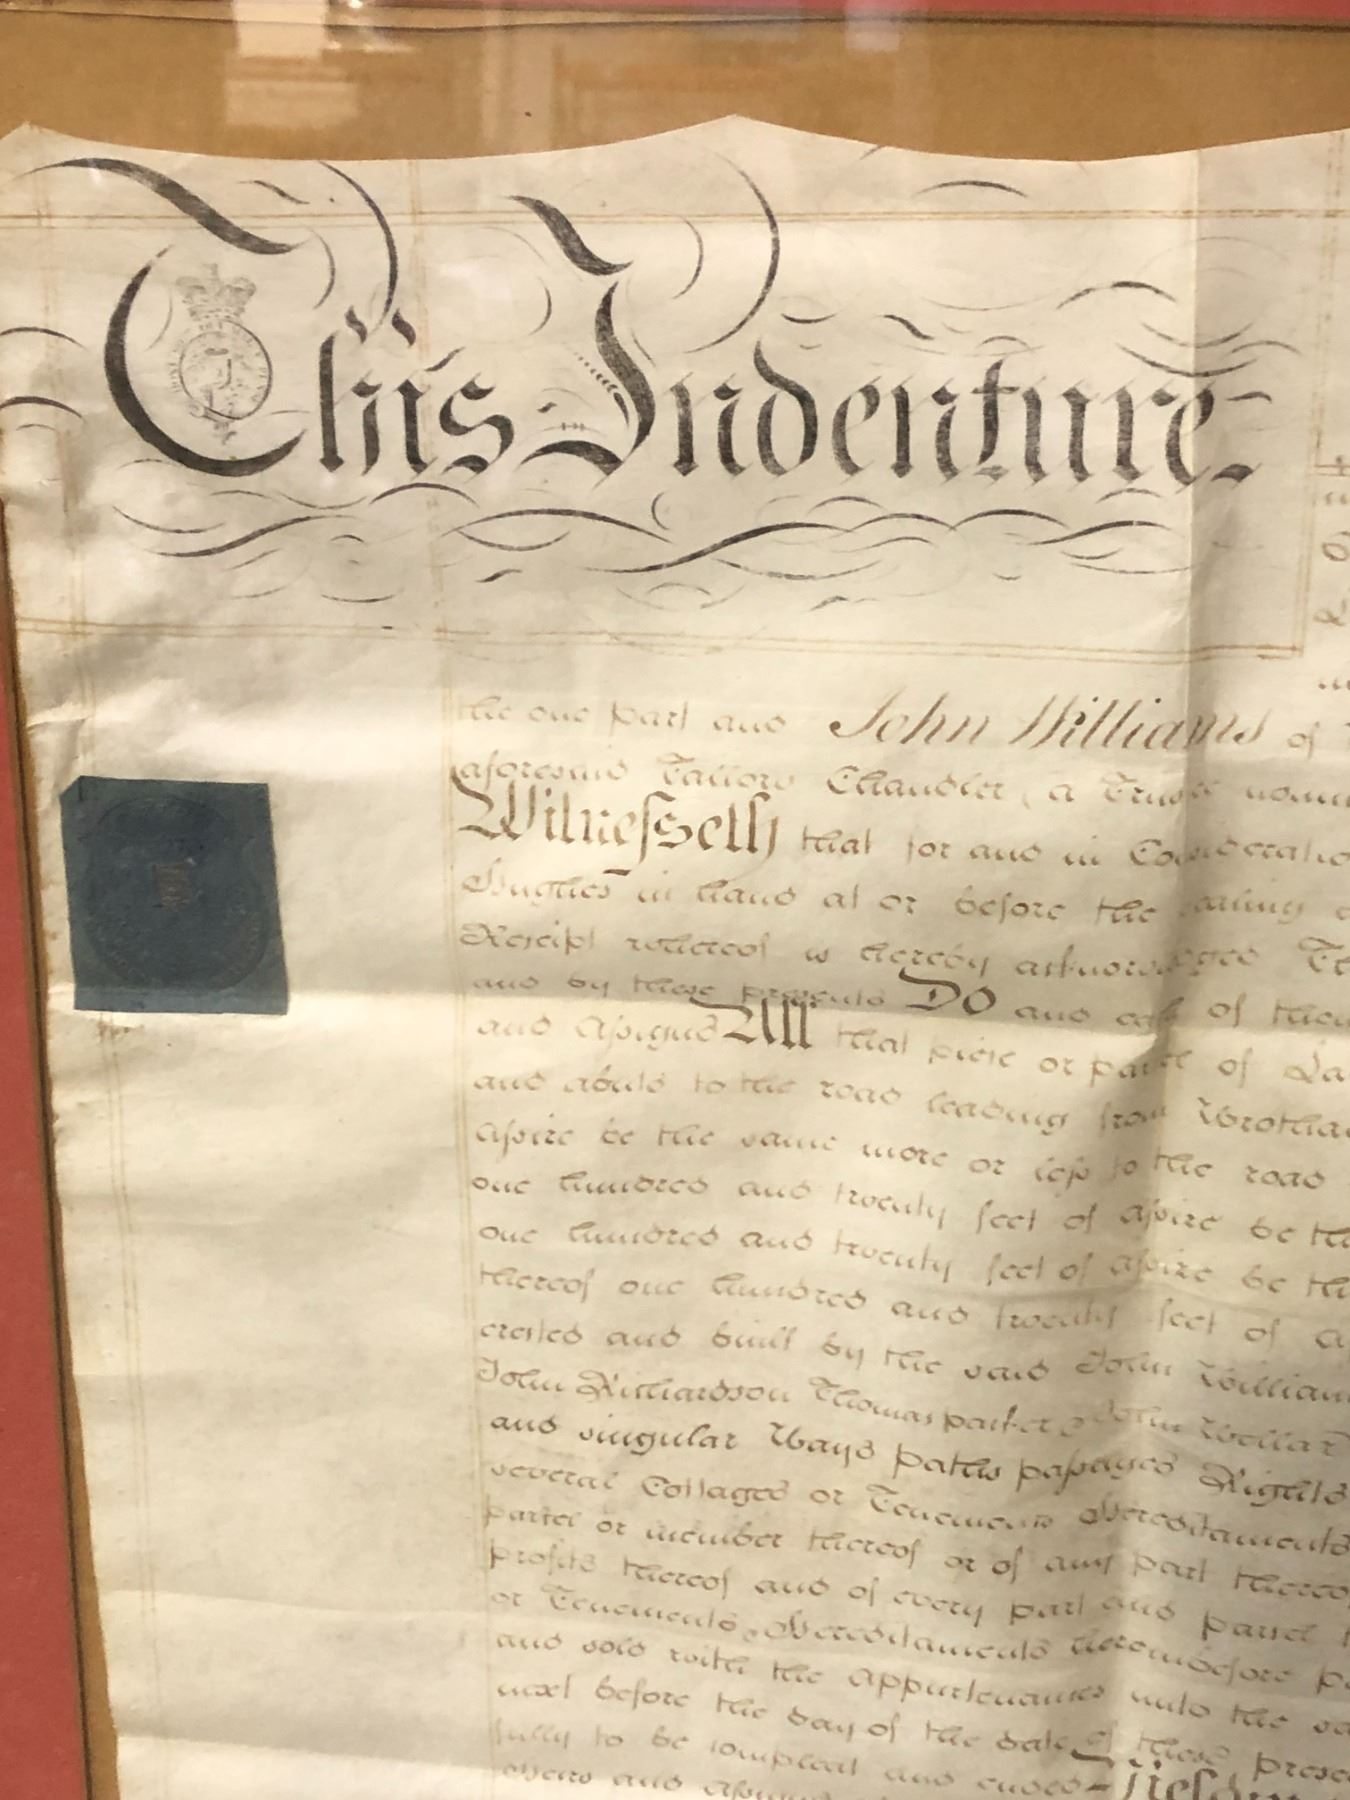 This Indenture
the one part and John Williams of
aforesaid Tallow Chandler, a Trustee
Witnesseth that for and in Consideratio
Hughes in hand at or before the sealing
Receipt whereof is hereby acknowledged
and by these presents Do and each of them
and Aſsigns All that piece or parcel of La
and abuts to the road leading from Wrotha
aſsize be the same more or leſs to the road
one hundred and twenty feet of aſsize be th
one hundred and twenty feet of aſsize be th
thereof one hundred and twenty feet of a
erected and built by the said John William
John Richardson Thomas parker & John Wellar
and singular Ways paths paſsages Rights
several Cottages or Tenements Hereditaments
parcel or member thereof or of any part thereo
profits thereof and of every part and parcel
or Tenements Hereditaments hereinbefore
and sold with the Appurtenances unto the
next before the day of the date of these prese
fully to be compleat and ended
Heirs and Aſsigns